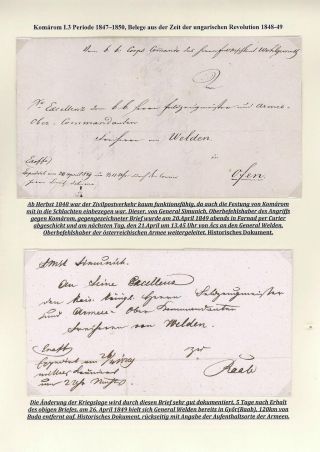 Komárom I.3 Periode 1847–1850, Belege aus der Zeit der ungarischen Revolution 1848-49
Vom k. k. Corps Commando des
Sr Excellenz dem k. k. Herrn Feldzeugmeister und Armee-
Ober-Commandanten
Freiherrn von Welden
Ofen
Ab Herbst 1848 war der Zivilpostverkehr kaum funktionsfähig, da auch die Festung von Komárom
mit in die Schlachten einbezogen war. Dieser, von General Simunich, Oberbefehlshaber des Angriffs
gegen Komárom, gegengezeichneter Brief wurde am 20.April 1849 abends in Farnad per Curier
abgeschickt und am nächsten Tag, den 21 April um 13.45 Uhr von Ács an den General Welden,
Oberbefehlshaber der österreichischen Armee weitergeleitet. Historisches Dokument.
Simunich.
An Seine Excellenz
den kais. königl. Herrn Feldzeugmeister
und Armee-Ober Commandanten
Freiherrn von Welden.
zu
Raab
Die Änderung der Kriegslage wird durch diesen Brief sehr gut dokumentiert. 5 Tage nach Erhalt
des obigen Briefes, am 26. April 1849 hielt sich General Welden bereits in Győr(Raab), 120km von
Buda entfernt auf. Historisches Dokument, rückseitig mit Angabe der Aufenthaltsorte der Armeen.